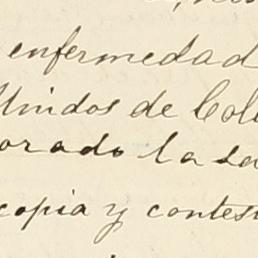 enfermedad
Unidos de Col
orado la sa
copia y contes